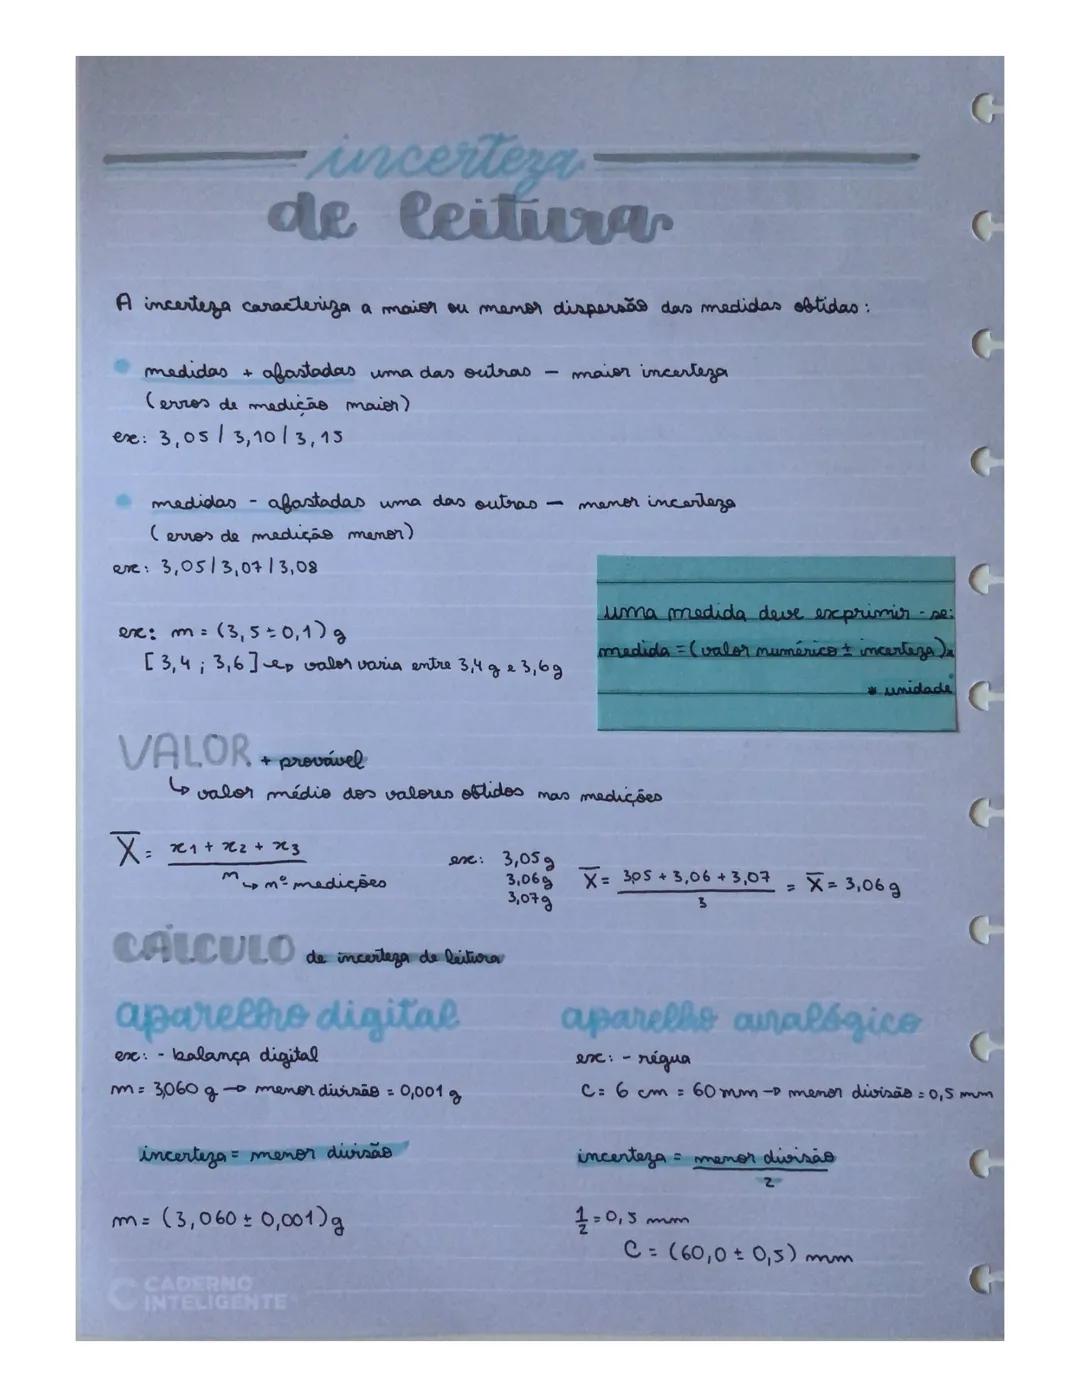 incerteza
de leitura
A incerteza caracteriza a maior ou menor dispersão das medidas obtidas:
medidas + afastadas uma das outras - maior incerteza
(erros de medição maior)
ex: 3,05 / 3,10 / 3,15
medidas - afastadas uma das outras - menor incerteza
(erros de medição menor)
ex: 3,05 / 3,07 / 3,08
uma medida deve exprimir-se:
medida = (valor numérico ± incerteza) x
* unidade
ex: m = (3,5 ± 0,1) g
[3,4 ; 3,6] → valor varia entre 3,4 g e 3,6 g
VALOR + provável
↳ valor médio dos valores obtidos nas medições
X̄ = x1 + x2 + x3 / n ↳ nº medições
ex: 3,05 g
3,06 g
3,07 g
X̄ = 3,05 + 3,06 + 3,07 / 3 = X̄ = 3,06 g
CÁLCULO de incerteza de leitura
aparelho digital
ex: - balança digital
m = 3,060 g → menor divisão = 0,001 g
incerteza = menor divisão
m = (3,060 ± 0,001) g
aparelho analógico
ex: - régua
C = 6 cm = 60 mm → menor divisão = 0,5 mm
incerteza = menor divisão / 2
1/2 = 0,5 mm
C = (60,0 ± 0,5) mm
CADERNO
INTELIGENTE